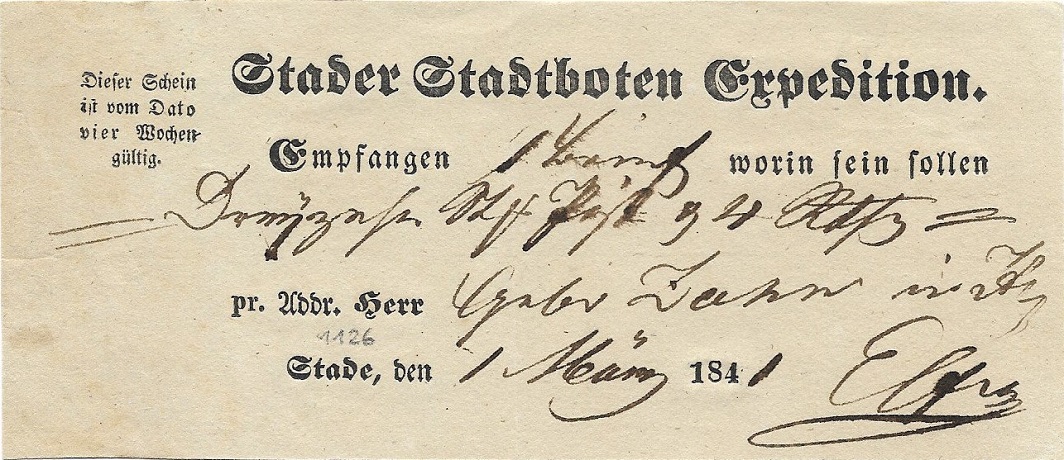 Dieser Schein
ist vom Dato
vier Wochen
gültig.
Stader Stadtboten Expedition.
Empfangen 1 Brief worin sein sollen
Dreyzehn
pr. Addr. Herr Gebr Zahn in
1126
Stade, den 1 März 1841